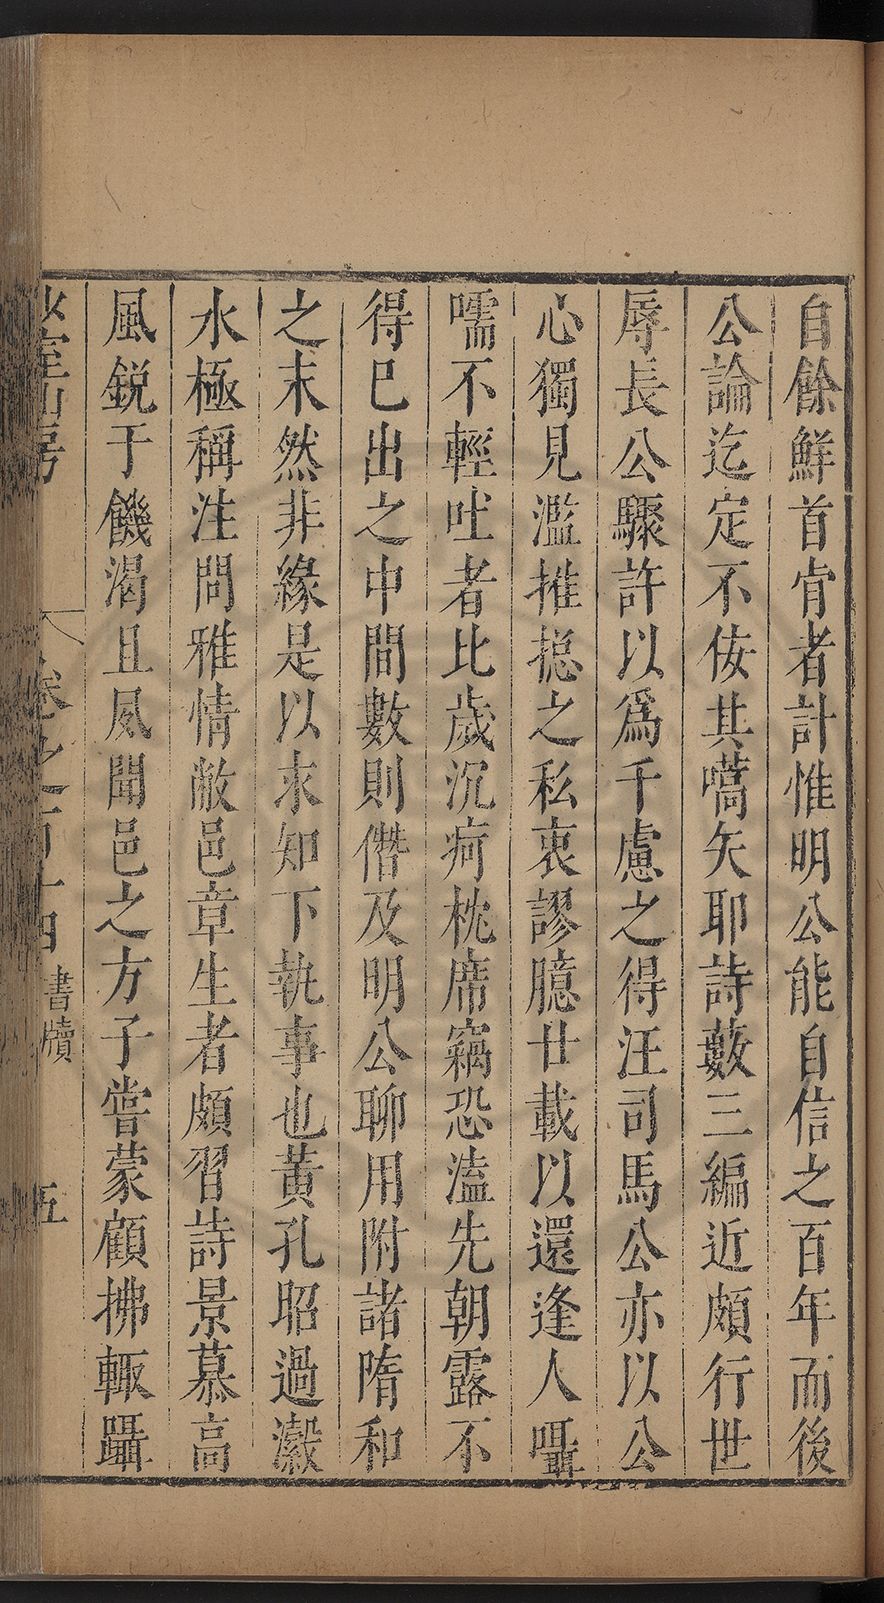 自餘鮮首肎者計惟明公能自信之百年而後
公論迄定不佞其嚆矢耶詩藪三編近頗行世
辱長公驟許以爲千慮之得汪司馬公亦以公
心獨見濫推挹之私衷謬臆廿載以還逢人囁
嚅不輕吐者比歲沉疴枕席竊恐溘先朝露不
得已出之中間數則僭及明公聊用附諸隋和
之末然非緣是以求知下執事也黄孔昭過瀫
水極稱注問雅情敝邑章生者頗習詩景慕高
風鋭于饑渴且夙聞邑之方子嘗蒙顧拂輙躡
少室山房 卷之一百十四 書牘 五